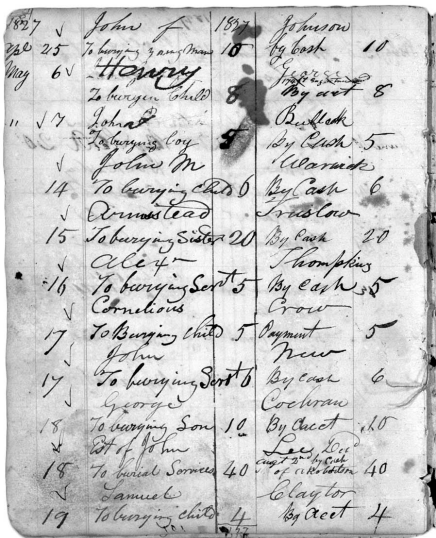 1827 John J 1827 Johnson
Apl 25 To burying young Man 10 by Cash 10
May 6 Henry
To buryin Child 8 By act 8
" 17 John Bullock
To burying boy 5 By Cash 5
John M Warwick
14 To burying child 6 By Cash 6
Armistead Truslow
15 To burying Sister 20 By Cash 20
Alex Thompkins
16 To burying Servt 5 By Cash 5
Cornelious Crow
17 To Burying Child 5 Payment 5
John New
17 To burying Servt 6 By cash 6
George Cochran
18 To burying Son 10 By Acct 10
Est of John Lee Decd
Augt 2nd by Cash
18 To burial Services 40 of 40
Samuel Claytor
19 To burying child 4 By Acct 4